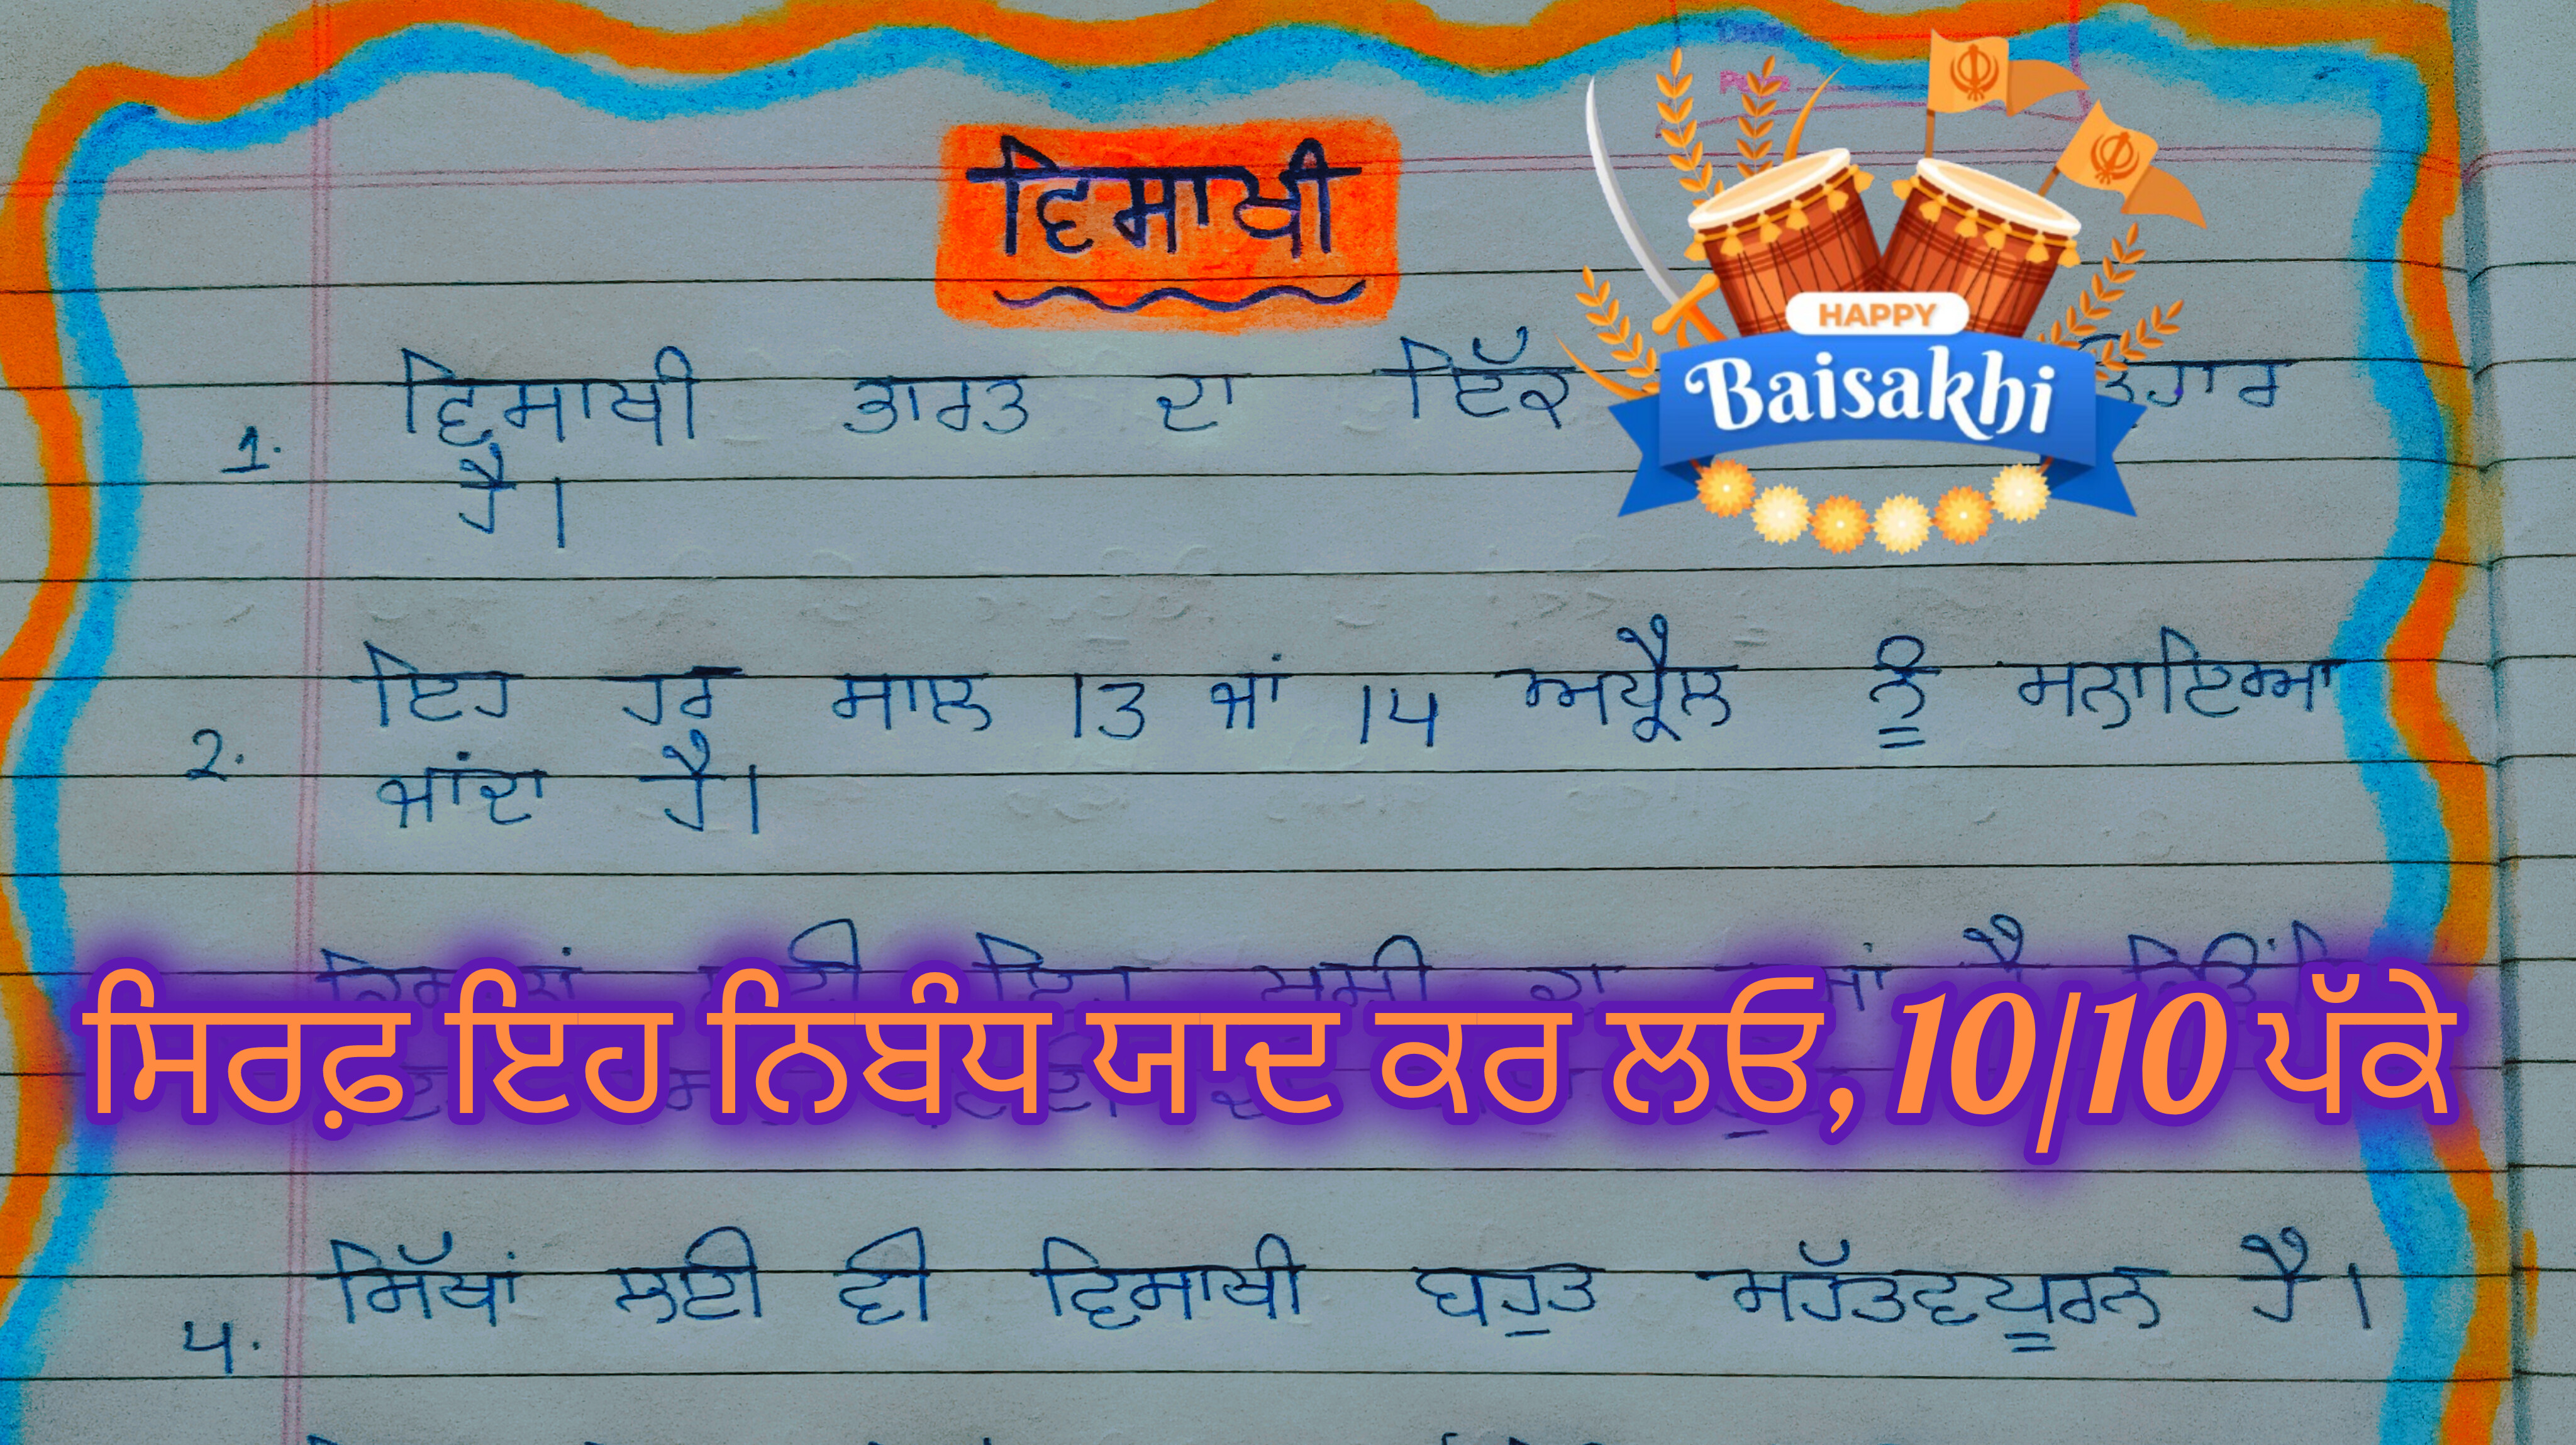 ਵਿਸਾਖੀ
HAPPY
Baisakhi
1. ਵਿਸਾਖੀ ਭਾਰਤ ਦਾ ਇੱਕ
ਹੈ।
2. ਇਹ ਹਰ ਸਾਲ 13 ਜਾਂ 14 ਅਪ੍ਰੈਲ ਨੂੰ ਮਨਾਇਆ
ਜਾਂਦਾ ਹੈ।
ਸਿਰਫ਼ ਇਹ ਨਿਬੰਧ ਯਾਦ ਕਰ ਲਓ, 10/10 ਪੱਕੇ
4. ਸਿੱਖਾਂ ਲਈ ਵੀ ਵਿਸਾਖੀ ਬਹੁਤ ਮਹੱਤਵਪੂਰਨ ਹੈ।